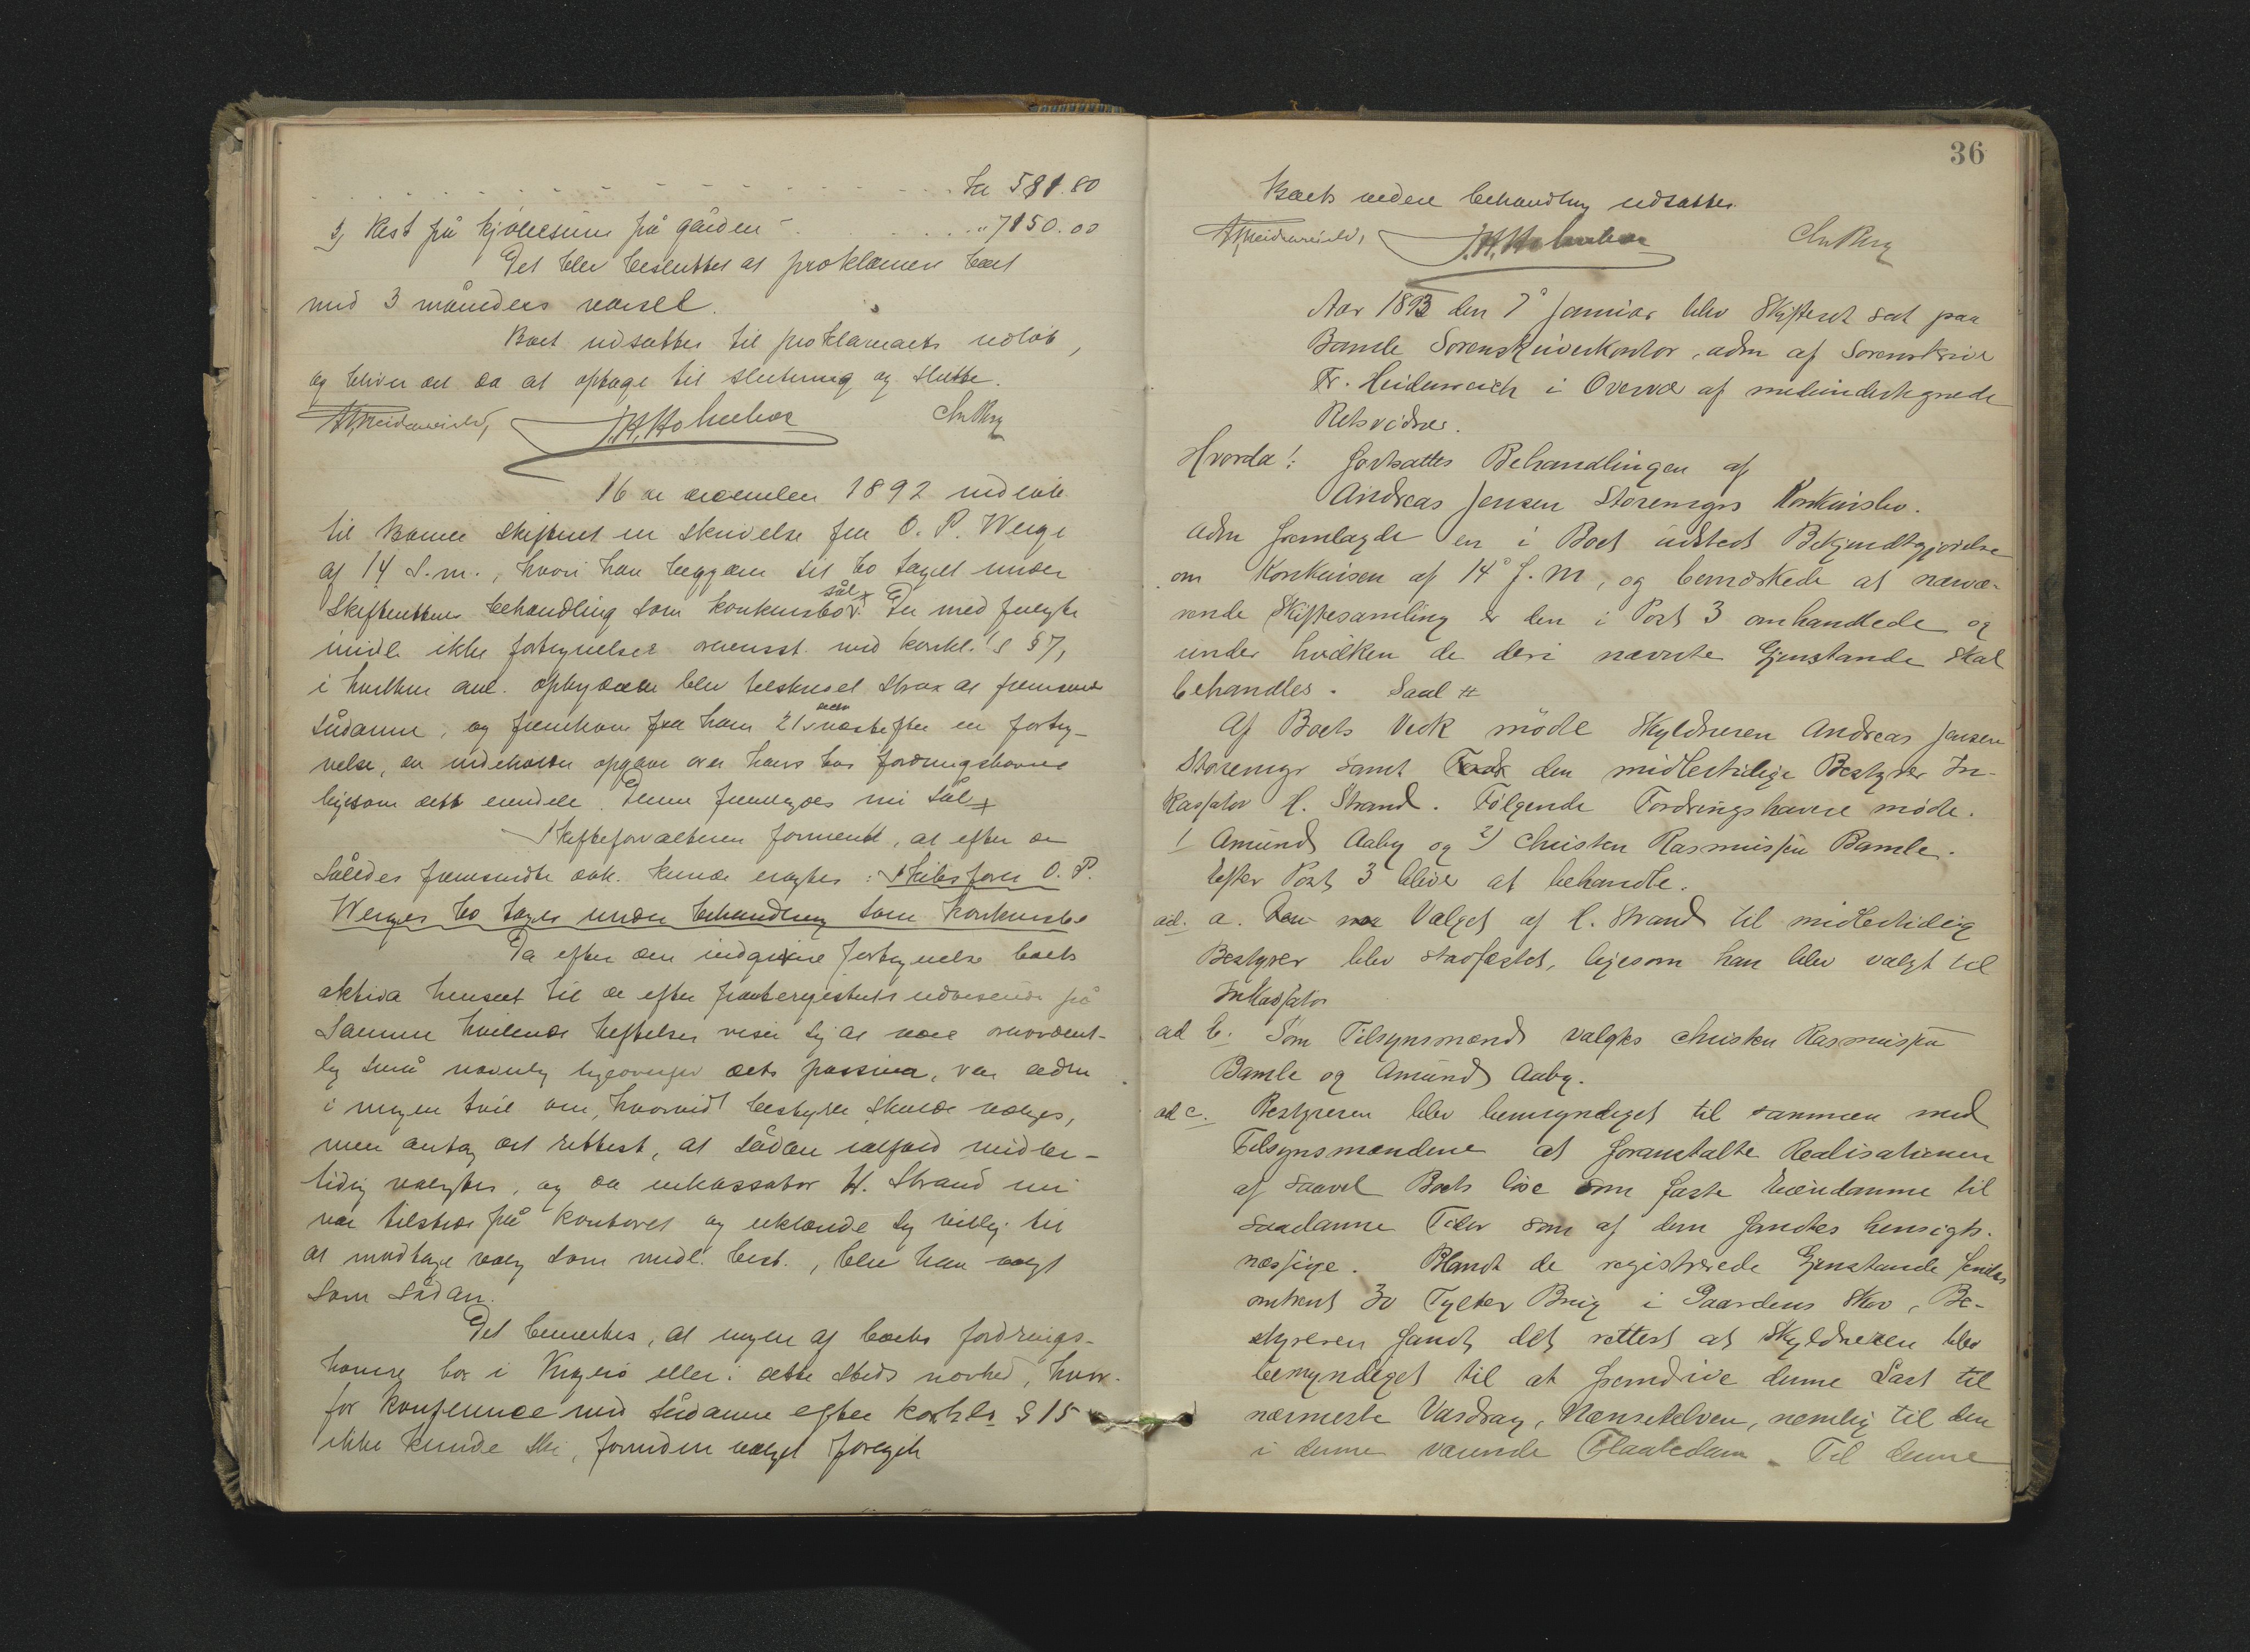 kr 581.80
3, Rest på kjøbesum på gården - " 7150.00
Det blev besluttet at proklamere boet
med 3 måneders varsel.
Boet udsattes til proklamaets udløb,
og bliver det da at optage til slutning og slutte.
J. H. Holmboe
Chr Berg
16 de december 1892 indkom
til Bamle skifteret en skrivelse fra O. P. Werge
af 14 d. m., hvori han begjærer sit bo taget under
Skifterettens behandling som konkursbo. sål. Da med fulgte
imidl. ikke fortegnelser overensst. med konkl.'s § 7,
i hvilken anl. ophyderen blev tilskrevet strax at fremsende
sådanne, og fremkom fra ham 21 næstefter en forteg-
nelse, der indeholder opgave over hans bos fordringshavere
ligesom dets eiendele. Denne fremlagdes nu sål
Skifteforvalteren formente, at efter de
således fremsendte dok. kunde eragtes: Skibsfører O. P.
Werges bo tages under behandling som konkursbo
Da efter den indgivne fortegnelse boets
aktiva henseet til de efter panteregistrets udvisende på
samme hvilende heftelser viser sig at være overordent-
lig små navnlig ligeoverfor dets passiva, var adm
i megen tvil om, hvorvidt bestyrer skulde vælges,
men antog det rettest, at sådan ialfald midler-
tidig valgtes, og da inkassator H. Strand nu
var tilstede på kontoret og erklærede sig villig til
at modtage valg som midl. best., blev han valgt
som sådan.
Det bemerkes, at ingen af boets fordrings-
havere bor i Kragerø eller i dette steds nærhed, hvor-
for konference med sådanne efter konkls § 15
ikke kunde ske, forinden valget foregik
36
Boets videre behandling udsattes.
J. H. Holmboe
Chr Berg
Aar 1893 den 7de Januar blev Skifteret sat paa
Bamle Sorenskriverkontor, adm af Sorenskriver
Fr. Heidenreich i Overvær af medundertegnede
Retsvidner.
Hvorda!: fortsattes Behandlingen af
Andreas Jensen Storemyrs Konkursbo.
Adm fremlagde en i Boet udstedt Bekjendtgjørelse
om Konkursen af 14de f. M, og bemærkede at nærvæ-
rende Skiftesamling er den i Post 3 omhandlede og
under hvilken de deri nævnte Gjenstande skal
behandles. Saal
Af Boets Vedk møde Skyldneren Andreas Jensen
Storemyr samt den midlertidige Bestyrer In-
kassator H. Strand. Følgende Fordringshavere møde.
1 Amund Aaby og 2) Christen Rasmussen Bamle.
Efter Post 3 bliver at behandle.
ad. a. Valget af H. Strand til midlertidig
Bestyrer blev stadfæstet, ligesom han blev valgt til
Inkassator
ad b. Som Tilsynsmænd valgtes Christen Rasmussen
Bamle og Amund Aaby.
ad c. Bestyreren blev bemyndiget til sammen med
Tilsynsmændene at foranstalte Realisationen
af saavel Boets løse som faste Eiendomme til
saadanne Tider som af dem fandtes hensigts-
mæssige. Blandt de registrerede Gjenstande findes
omtrent 30 Tylter Brug i Gaardens Skov, Be-
styreren fandt det rettest at Skyldneren blev
bemyndiget til at fremdrive denne Last til
nærmeste Vasdrag, Nensetelven, nemlig til den
i denne værende Flaatedam. Til denne